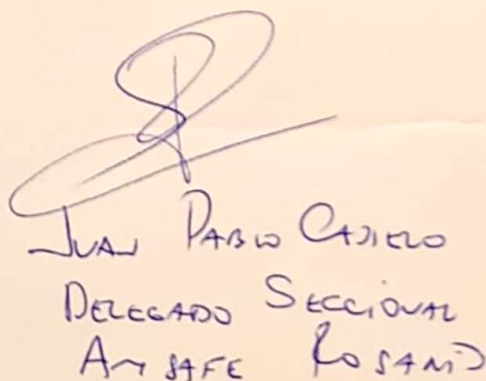 JUAN PABLO CASIELLO
DELEGADO SECCIONAL
AMSAFE ROSARIO